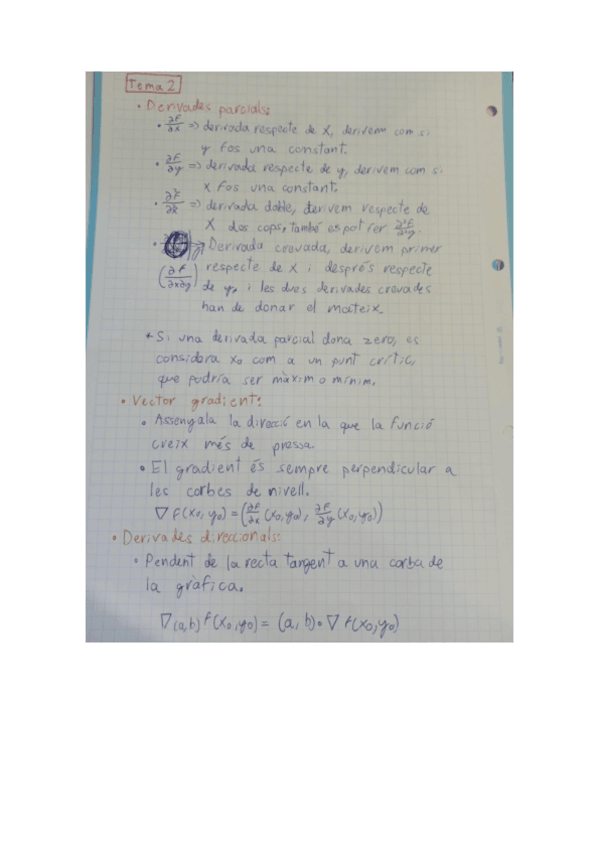 Tema 2
• Derivades parcials:
• ∂F/∂x => derivada respecte de x, derivem com si
y fos una constant.
• ∂F/∂y => derivada respecte de y, derivem com si
x fos una constant.
• ∂F/∂x => derivada doble, derivem respecte de
x dos cops, també es pot fer ∂²F/∂²y.
• => Derivada creuada, derivem primer
(∂F/∂x∂y) respecte de x i després respecte
de y, i les dues derivades creuades
han de donar el mateix.
* Si una derivada parcial dona zero, es
considera x₀ com a un punt crític,
que podría ser màxim o mínim.
• Vector gradient:
• Assenyala la direcció en la que la funció
creix més de pressa.
• El gradient és sempre perpendicular a
les corbes de nivell.
∇ f(x₀, y₀) = (∂F/∂x (x₀, y₀), ∂F/∂y (x₀, y₀))
• Derivades direccionals:
• Pendent de la recta tangent a una corba de
la gràfica.
∇(a,b) f(x₀, y₀) = (a, b) • ∇ f(x₀, y₀)